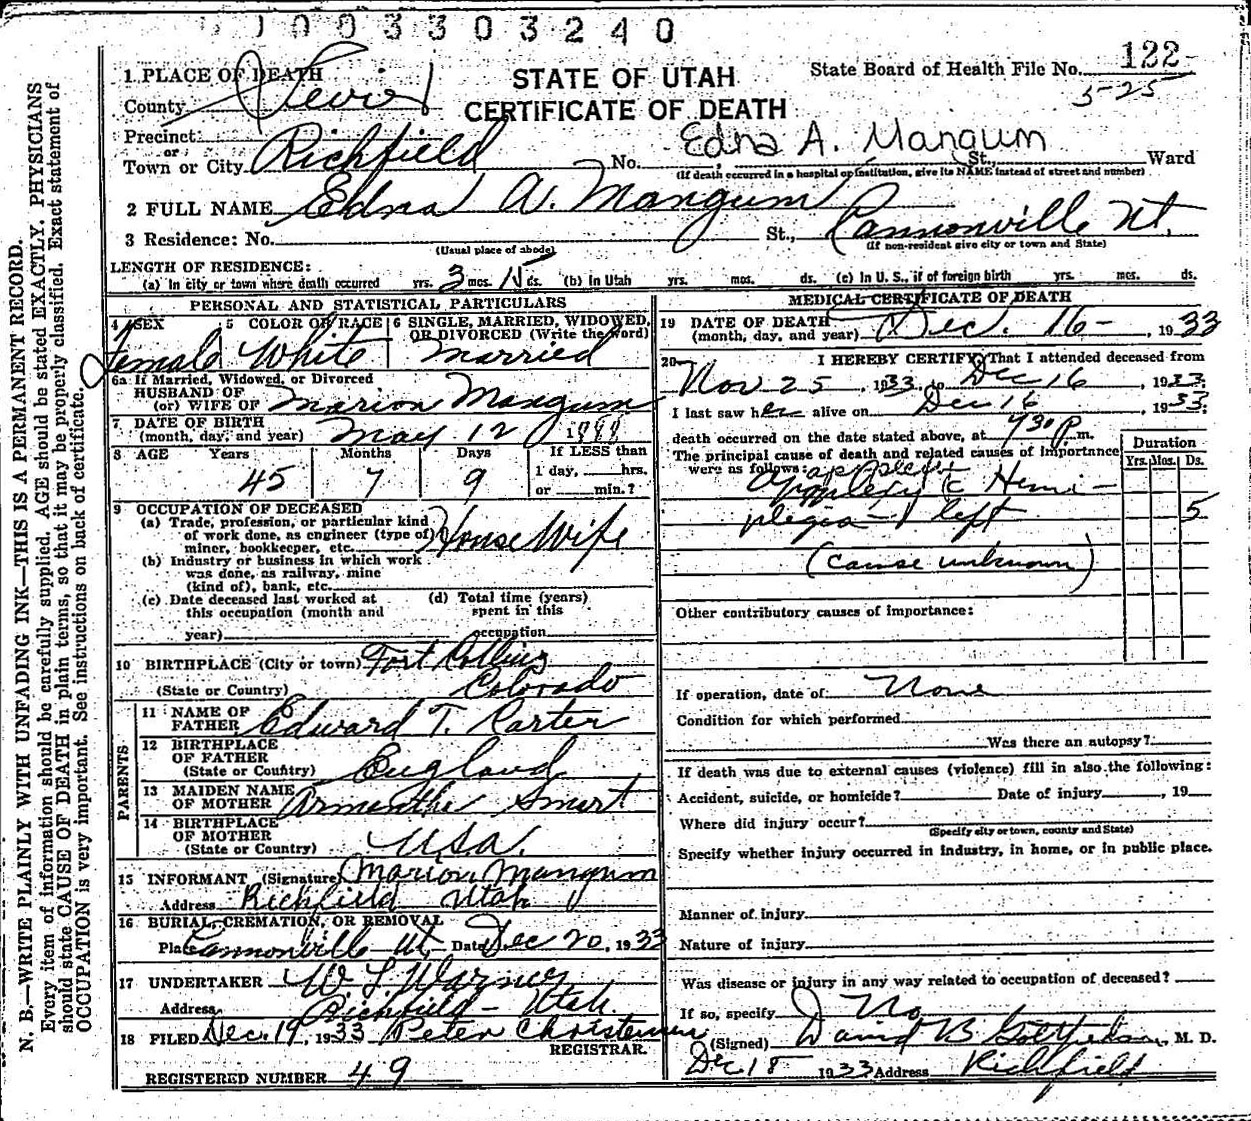 0003303240
1 PLACE OF DEATH
STATE OF UTAH
CERTIFICATE OF DEATH
State Board of Health File No. 122-
5-25
County Sevier
Precinct
or
Town or City Richfield No. Edna A. Mangum St., Ward
(If death occurred in a hospital or institution, give its NAME instead of street and number)
2 FULL NAME Edna A. Mangum
3 Residence: No. St., Cannonville Ut.
(Usual place of abode) (If non-resident give city or town and State)
LENGTH OF RESIDENCE:
(a) In city or town where death occurred yrs. 3 mos. 15 ds. (b) in Utah yrs. mos. ds. (c) In U. S., if of foreign birth yrs. mos. ds.
PERSONAL AND STATISTICAL PARTICULARS
4 SEX 5 COLOR OR RACE 6 SINGLE, MARRIED, WIDOWED, OR DIVORCED (Write the word)
Female White Married
6a If Married, Widowed, or Divorced
HUSBAND OF
(or) WIFE OF Marion Mangum
7 DATE OF BIRTH
(month, day, and year) May 12 1888
8 AGE Years Months Days If LESS than
1 day, hrs.
or min.?
45 7 9
9 OCCUPATION OF DECEASED
(a) Trade, profession, or particular kind
of work done, as engineer (type of)
miner, bookkeeper, etc. House Wife
(b) Industry or business in which work
was done, as railway, mine
(kind of), bank, etc.
(c) Date deceased last worked at
this occupation (month and
year)
(d) Total time (years)
spent in this
occupation
10 BIRTHPLACE (City or town) Fort Collins
(State or Country) Colorado
PARENTS
11 NAME OF
FATHER Edward T. Carter
12 BIRTHPLACE
OF FATHER
(State or Country) England
13 MAIDEN NAME
OF MOTHER Armantha Smart
14 BIRTHPLACE
OF MOTHER
(State or Country) U.S.A.
15 INFORMANT (Signature) Marion Mangum
Address Richfield Utah
16 BURIAL, CREMATION, OR REMOVAL
Place Cannonville Ut. Date Dec 20, 1933
17 UNDERTAKER W L Warner
Address Richfield - Utah
18 FILED Dec. 19, 1933 Peter Christensen
REGISTRAR.
REGISTERED NUMBER 49
MEDICAL CERTIFICATE OF DEATH
19 DATE OF DEATH
(month, day, and year) Dec. 16- , 1933
20 I HEREBY CERTIFY, That I attended deceased from
Nov 25 , 1933, to Dec 16 , 1933.
I last saw her alive on Dec 16 , 1933.
death occurred on the date stated above, at 730 P. m.
The principal cause of death and related causes of importance
were as follows:
Duration
Yrs. Mos. Ds.
apoplexy
apoplexy c Hemi-
plegia - left 5
(cause unknown)
Other contributory causes of importance:
If operation, date of None
Condition for which performed
Was there an autopsy?
If death was due to external causes (violence) fill in also the following:
Accident, suicide, or homicide? Date of injury , 19
Where did injury occur?
(Specify city or town, county and State)
Specify whether injury occurred in industry, in home, or in public place.
Manner of injury
Nature of injury
Was disease or injury in any way related to occupation of deceased?
If so, specify No
(Signed) David B Gottfredson, M. D.
Dec 18 1933 Address Richfield
N. B.—WRITE PLAINLY WITH UNFADING INK—THIS IS A PERMANENT RECORD.
Every item of information should be carefully supplied. AGE should be stated EXACTLY. PHYSICIANS
should state CAUSE OF DEATH in plain terms, so that it may be properly classified. Exact statement of
OCCUPATION is very important. See instructions on back of certificate.